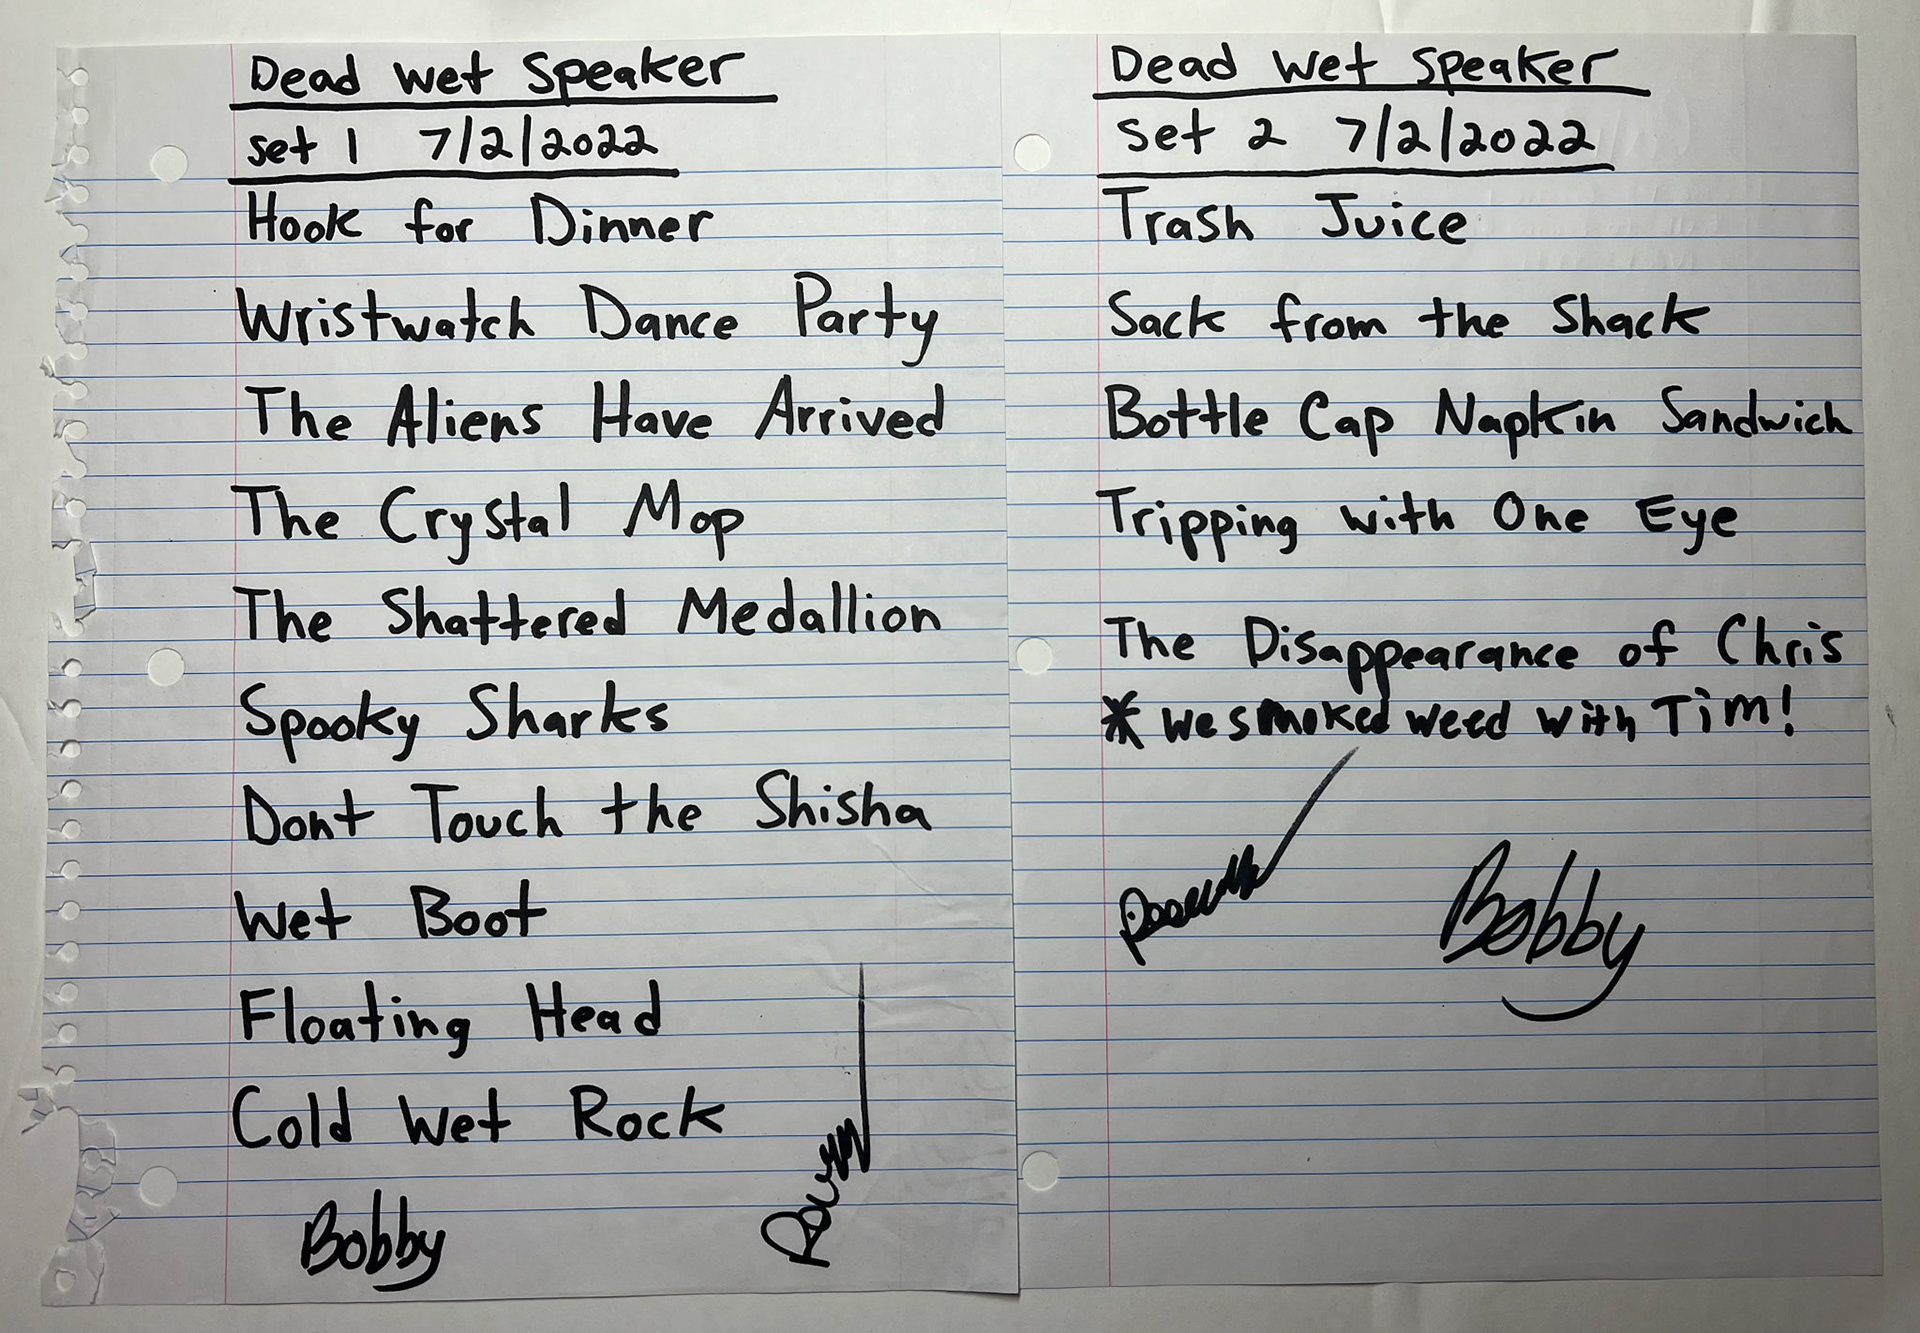 Dead Wet Speaker
Set 1 7/2/2022
Hook for Dinner
Wristwatch Dance Party
The Aliens Have Arrived
The Crystal Mop
The Shattered Medallion
Spooky Sharks
Dont Touch the Shisha
Wet Boot
Floating Head
Cold Wet Rock
Bobby
Dead Wet Speaker
Set 2 7/2/2022
Trash Juice
Sack from the Shack
Bottle Cap Napkin Sandwich
Tripping with One Eye
The Disappearance of Chris
* We smoked weed with Tim!
Bobby